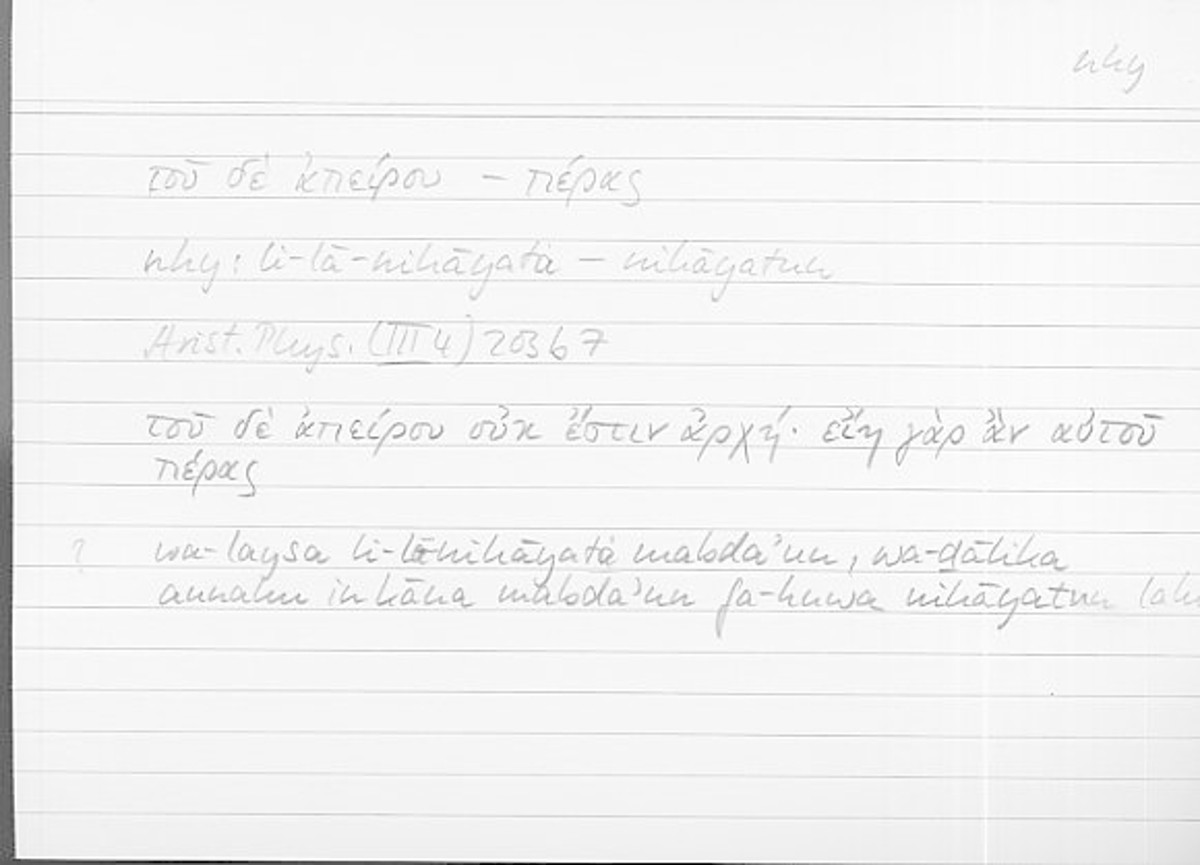 nhy
τοῦ δὲ ἀπείρου – πέρας
nhy: li-lā-nihāyata – nihāyatun
Arist. Phys. (III 4) 203b7
τοῦ δὲ ἀπείρου οὐκ ἔστιν ἀρχή· εἴη γὰρ ἂν αὐτοῦ
πέρας
? wa-laysa li-lā-nihāyata mabda'un, wa-ḏālika
annahu in kāna mabda'un fa-huwa nihāyatun